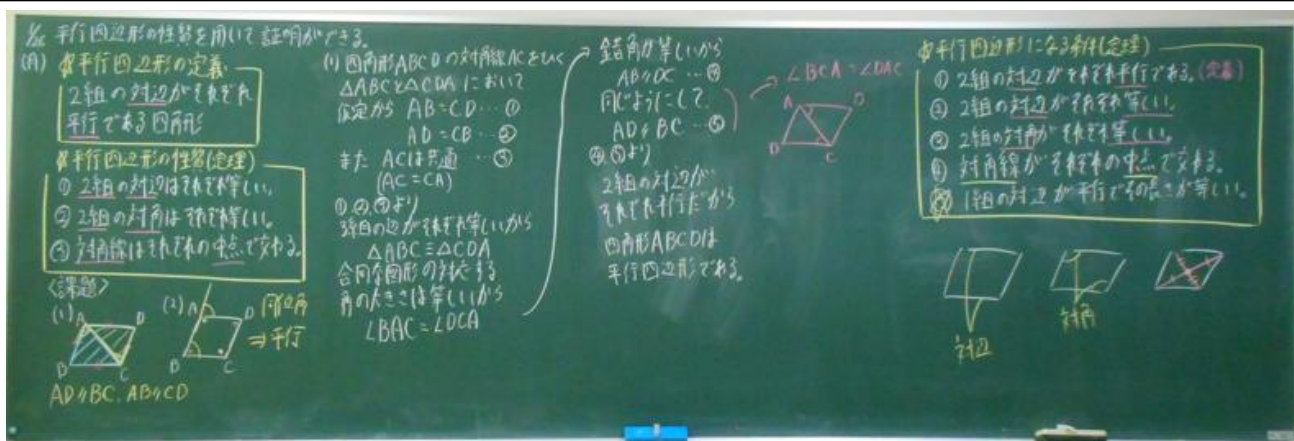 平行四辺形の性質を用いて証明ができる。
(A)
平行四辺形の定義
2組の対辺がそれぞれ
平行である四角形
平行四辺形の性質(定理)
① 2組の対辺はそれぞれ等しい。
② 2組の対角はそれぞれ等しい。
③ 対角線はそれぞれの中点で交わる。
〈課題〉
(1) A D B C
(2) A D B C
同位角
⇒平行
AD∥BC, AB∥CD
(1) 四角形ABCDの対角線ACをひく
△ABCと△CDAにおいて
仮定から AB=CD…①
AD=CB…②
また ACは共通…③
(AC=CA)
①,②,③より
3組の辺がそれぞれ等しいから
△ABC≡△CDA
合同な図形の対応する
角の大きさは等しいから
∠BAC=∠DCA
錯角が等しいから
AB∥DC…④
同じようにして、
AD∥BC…⑤
④,⑤より
2組の対辺が
それぞれ平行だから
四角形ABCDは
平行四辺形である。
∠BCA=∠DAC
A D
B C
平行四辺形になる条件(定理)
① 2組の対辺がそれぞれ平行である。(定義)
② 2組の対辺がそれぞれ等しい。
③ 2組の対角がそれぞれ等しい。
④ 対角線がそれぞれの中点で交わる。
1組の対辺が平行でその長さが等しい。
対辺
対角